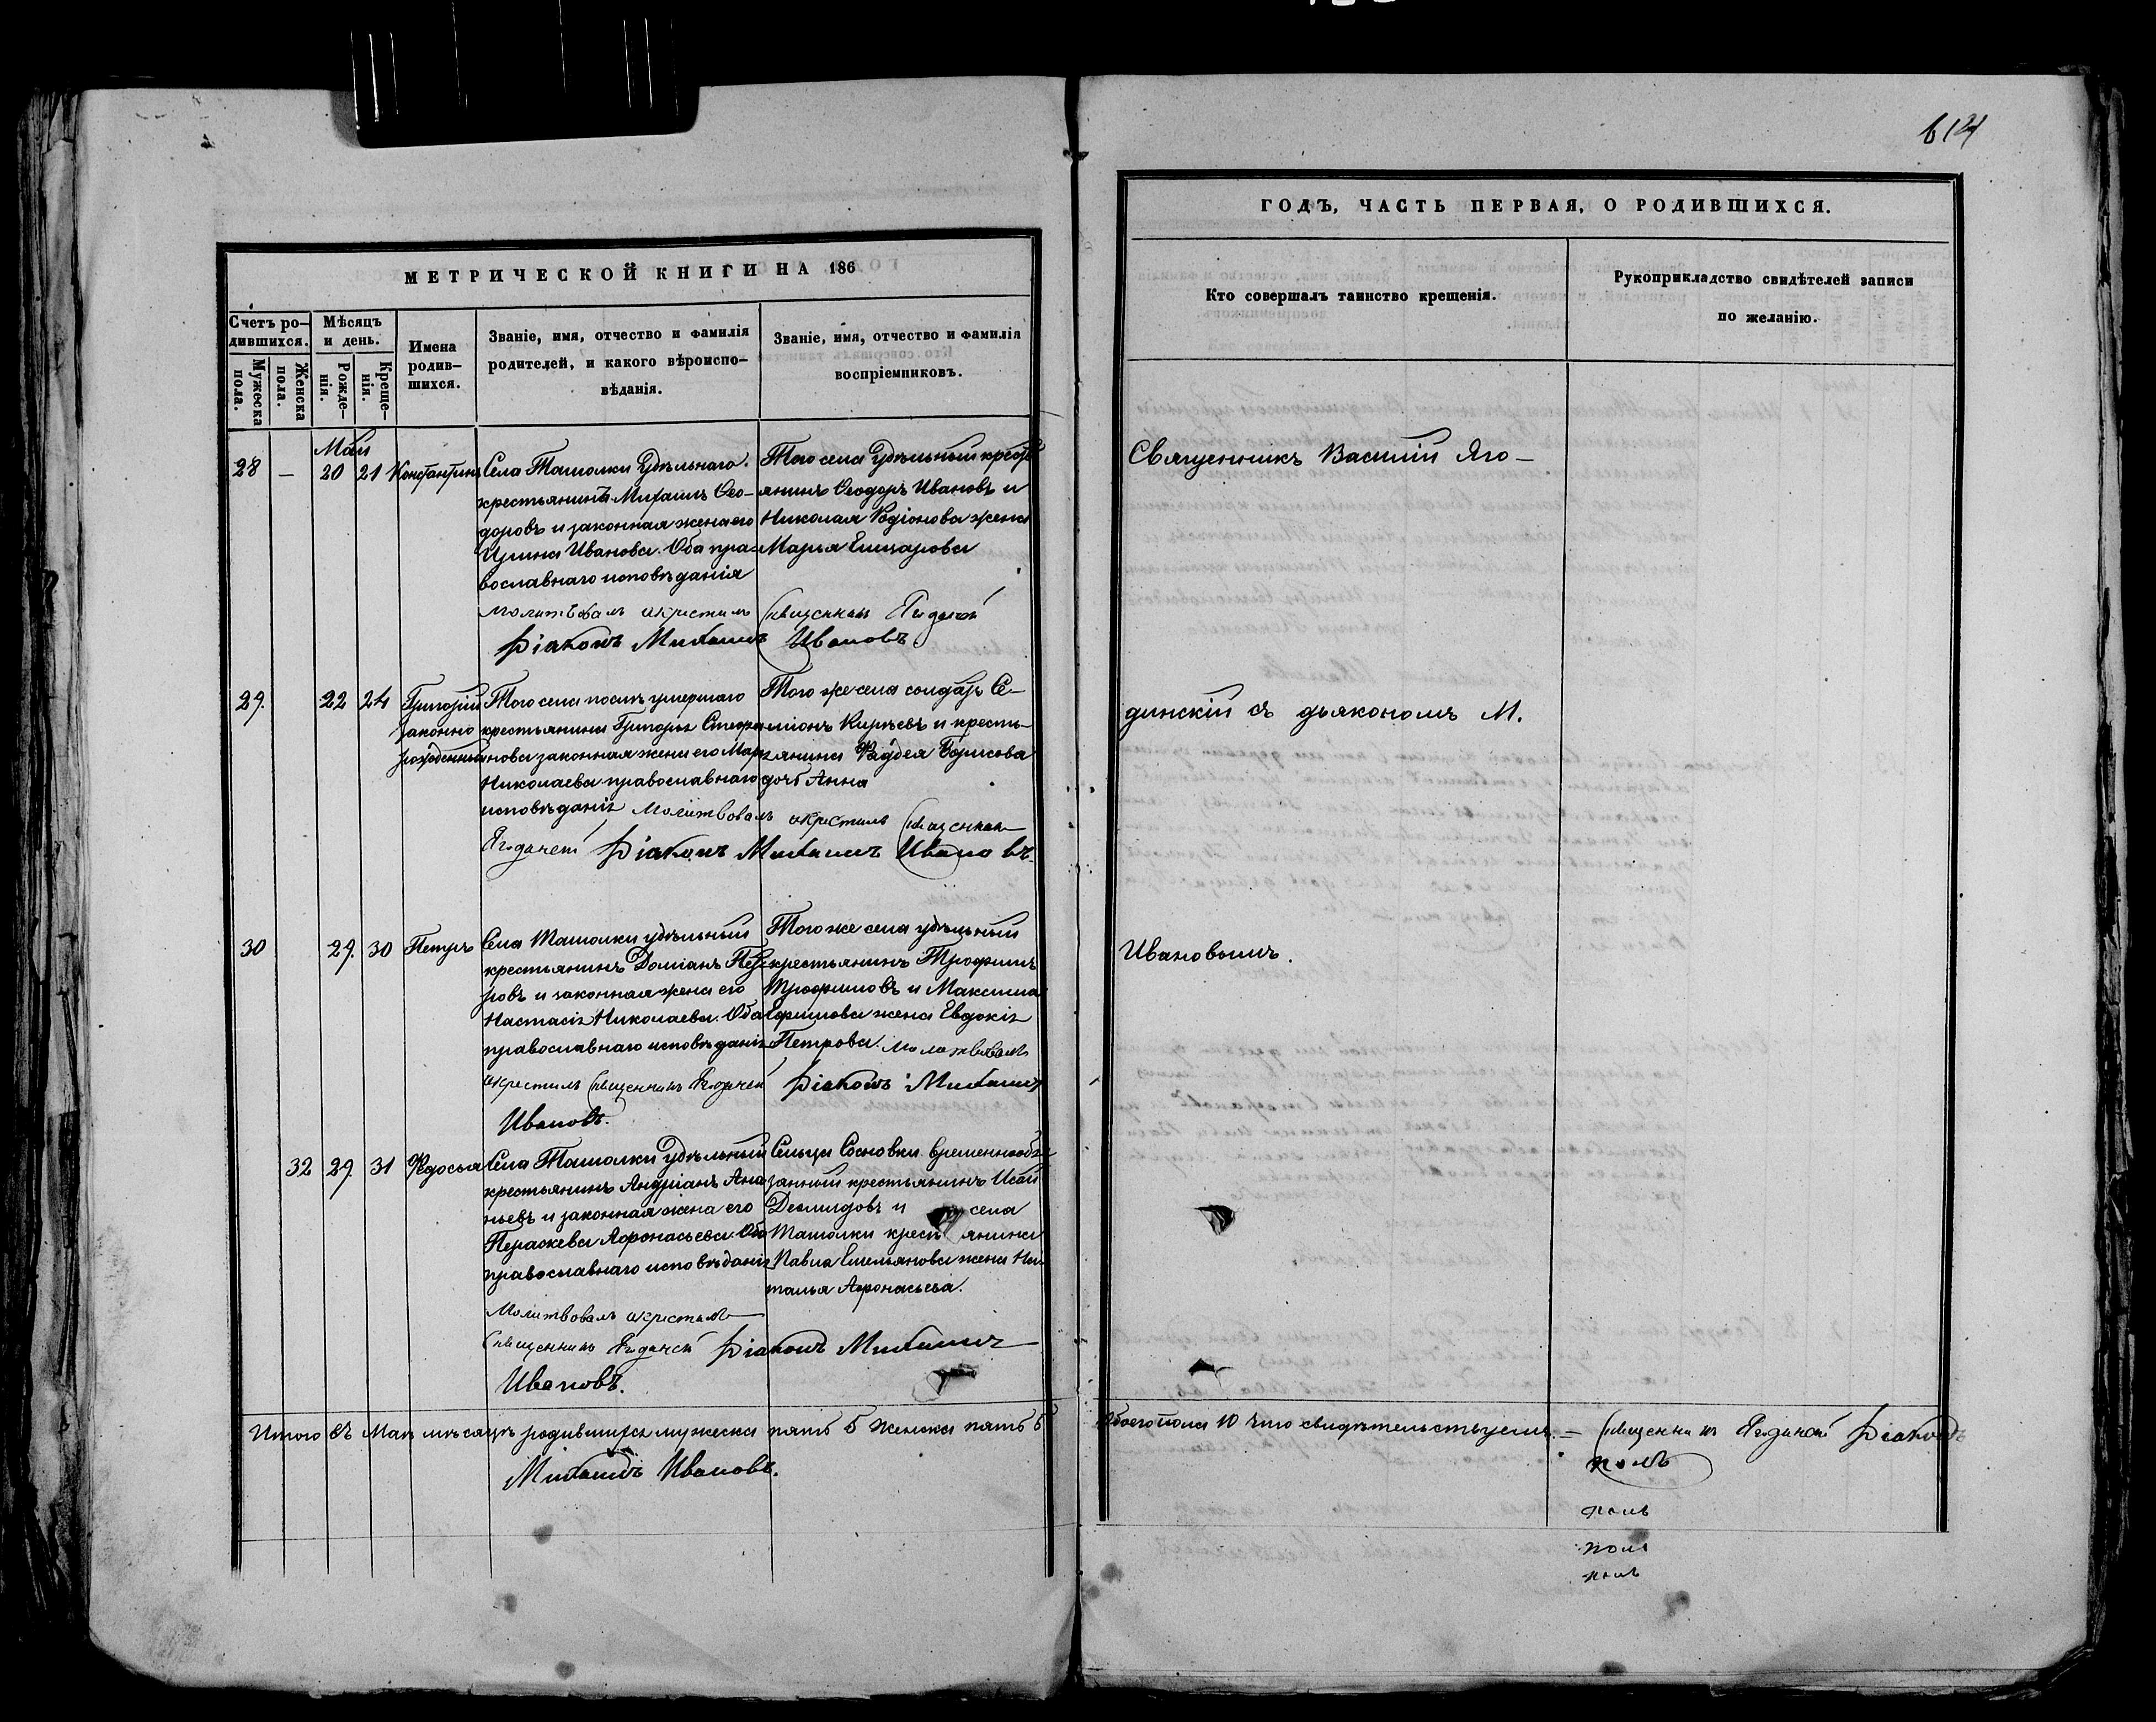 614
МЕТРИЧЕСКОЙ КНИГИ НА 186
Счетъ ро-
дившихся.
Мужеска
пола.
Женска
пола.
Мѣсяцъ
и день.
Рожде-
нія.
Креще-
нія.
Имена
родив-
шихся.
Званіе, имя, отчество и фамилія
родителей, и какого вѣроиспо-
вѣданія.
Званіе, имя, отчество и фамилія
воспріемниковъ.
Май
28 — 20 21 Константинъ
Села Ташолки удѣльнаго
крестьянинъ Михаилъ Ѳео-
доровъ и законная жена его
Ирина Иванова. Оба пра-
вославнаго исповѣданія
Того села удѣльный крест
янинъ Ѳеодоръ Ивановъ и
Николая Родіонова жена
Марья
Молитвовалъ и крестилъ Священникъ
Діаконъ Михаилъ Ивановъ
29. 22 24 Григорій
законно
рожденный
Того села послѣ умершаго
крестьянина Григорья Стефа
нова законная жена его Мар
Николаева православнаго
исповѣданія
Того же села солдатъ Се-
міонъ Кирѣевъ и кресть-
янина Фадѣя Борисова
дочь Анна
Молитвовалъ и крестилъ Священникъ
Діаконъ Михаилъ Ивановъ.
30 29. 30 Петръ
Села Ташолки удѣльный
крестьянинъ Даміанъ Пет
ровъ и законная жена его
Настасія Николаева. Оба
православнаго исповѣданія
Того же села удѣльный
крестьянинъ Трофимъ
Трофимовъ и Максима
Ефимова жена Евдокія
Петрова. Молитвовалъ
и крестилъ Священникъ Діаконъ Михаилъ
Ивановъ.
32 29. 31 Ѳедосья
Села Ташолки удѣльный
крестьянинъ Андріанъ Ана
ньевъ и законная жена его
Параскева Афонасьева. Оба
православнаго исповѣданія
Сельца Сосновки временнообя
занный крестьянинъ Исай
Демидовъ и села
Ташолки крестьянина
Павла Емельянова жена На
талья Афонасьева.
Молитвовалъ и крестилъ
Священникъ Діаконъ Михаилъ
Ивановъ.
Итого въ Маѣ мѣсяцѣ родившихся мужеска пять 5 женска пять 5
Михаилъ Ивановъ.
ГОДЪ, ЧАСТЬ ПЕРВАЯ, О РОДИВШИХСЯ.
Кто совершалъ таинство крещенія.
Рукоприкладство свидѣтелей записи
по желанію.
Священникъ Василій Яго-
динскій съ дьякономъ М.
Ивановымъ.
Обоего пола 10 что свидѣтельствуемъ. — Священникъ Діаконъ